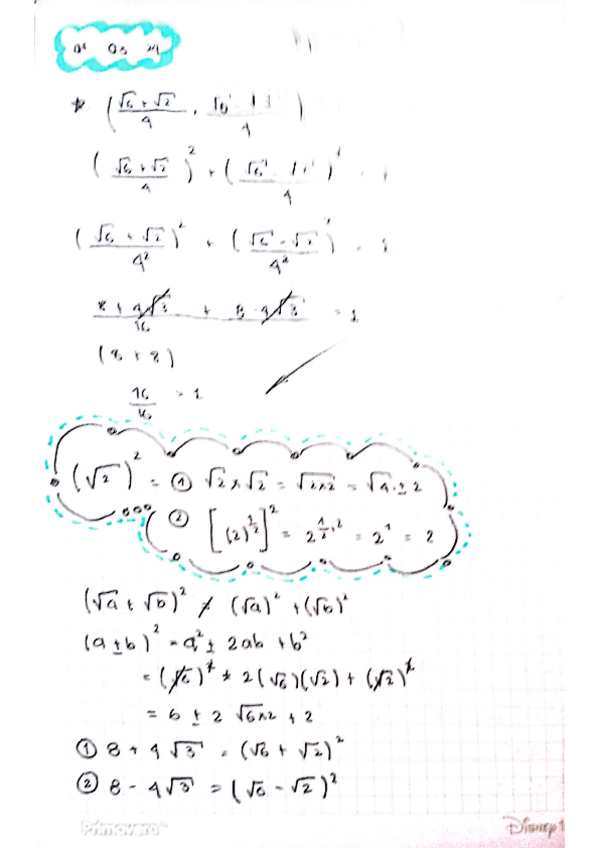 01 03 24
* (√6 + √2 / 4 ,
(√6 + √2 / 4)² + (√6 -
(√6 + √2)² / 4² + (√6 - √2)² / 4² = 1
8 + 4√3 / 16 + 8 - 4√3 = 1
(8 + 8)
16/16 = 1
(√2)² = ① √2 x √2 = √2x2 = √4 = ± 2
② [(2)^1/2]² = 2^1/2·2 = 2¹ = 2
(√a ± √b)² ≠ (√a)² + (√b)²
(a ± b)² = a² ± 2ab + b²
= (√6)² ± 2(√6)(√2) + (√2)²
= 6 ± 2 √6x2 + 2
① 8 + 4√3 = (√6 + √2)²
② 8 - 4√3 = (√6 - √2)²
Primavera Disney